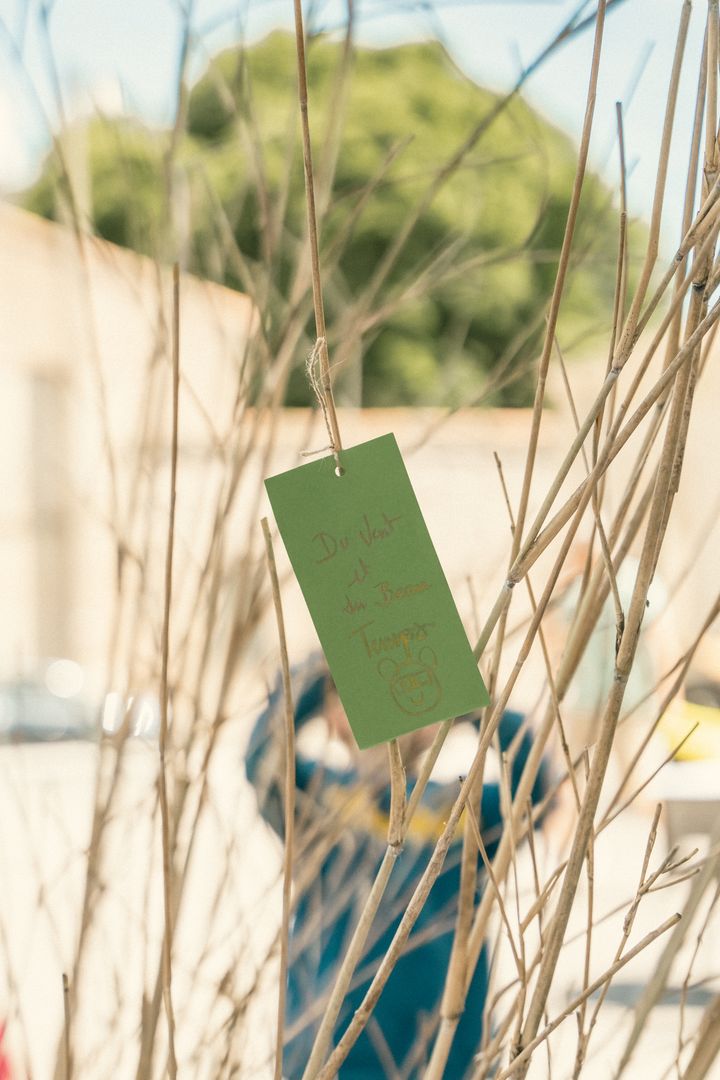 Du Vent
et
du Beau
Temps